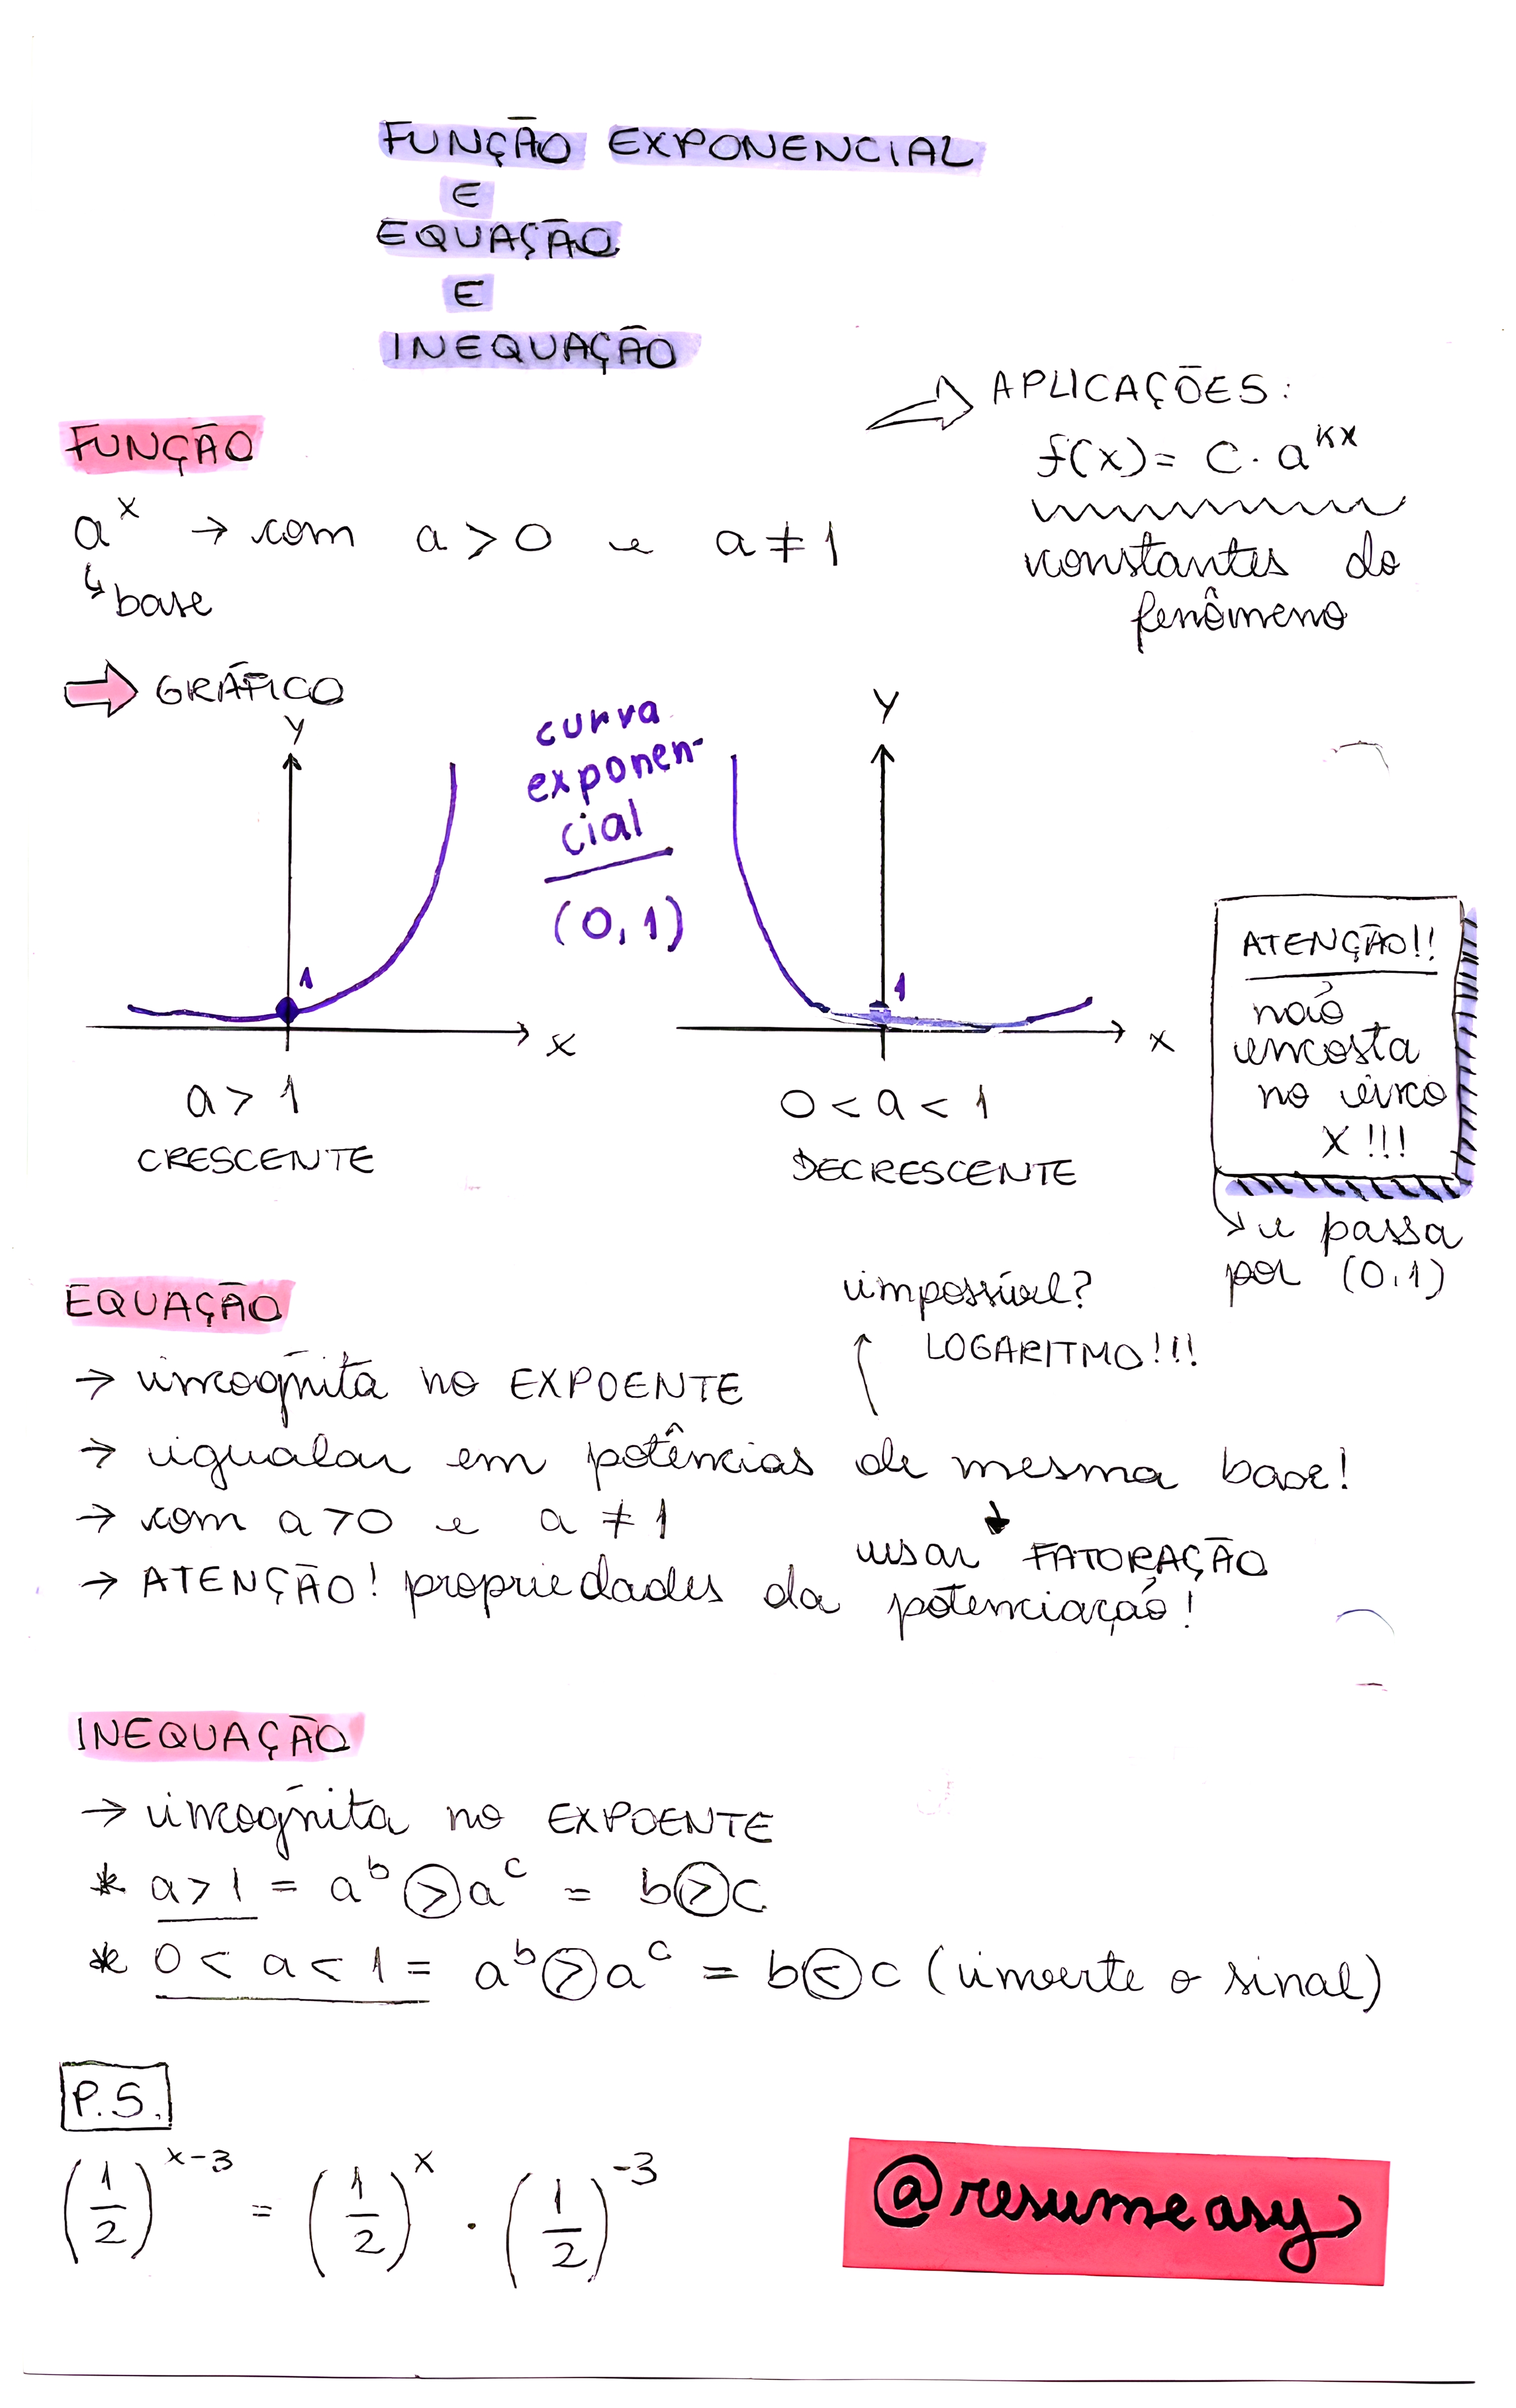 FUNÇÃO EXPONENCIAL
E
EQUAÇÃO
E
INEQUAÇÃO
FUNÇÃO
a^x → com a > 0 e a ≠ 1
↳ base
⇒ APLICAÇÕES:
f(x) = C · a^kx
constantes do
fenômeno
⇒ GRÁFICO
y
1
x
a > 1
CRESCENTE
curva
exponen-
cial
(0,1)
y
1
x
0 < a < 1
DECRESCENTE
ATENÇÃO!!
não
encosta
no eixo
X !!!
↳ e passa
por (0,1)
EQUAÇÃO
→ incógnita no EXPOENTE
impossível?
↑ LOGARITMO!!!
→ igualar em potências de mesma base!
→ com a > 0 e a ≠ 1
↓
usar FATORAÇÃO
→ ATENÇÃO! propriedades da potenciação!
INEQUAÇÃO
→ incógnita no EXPOENTE
* a > 1 = a^b > a^c = b > c
* 0 < a < 1 = a^b > a^c = b < c (inverte o sinal)
P.S.
(1/2)^x-3 = (1/2)^x · (1/2)^-3
@resumeasy